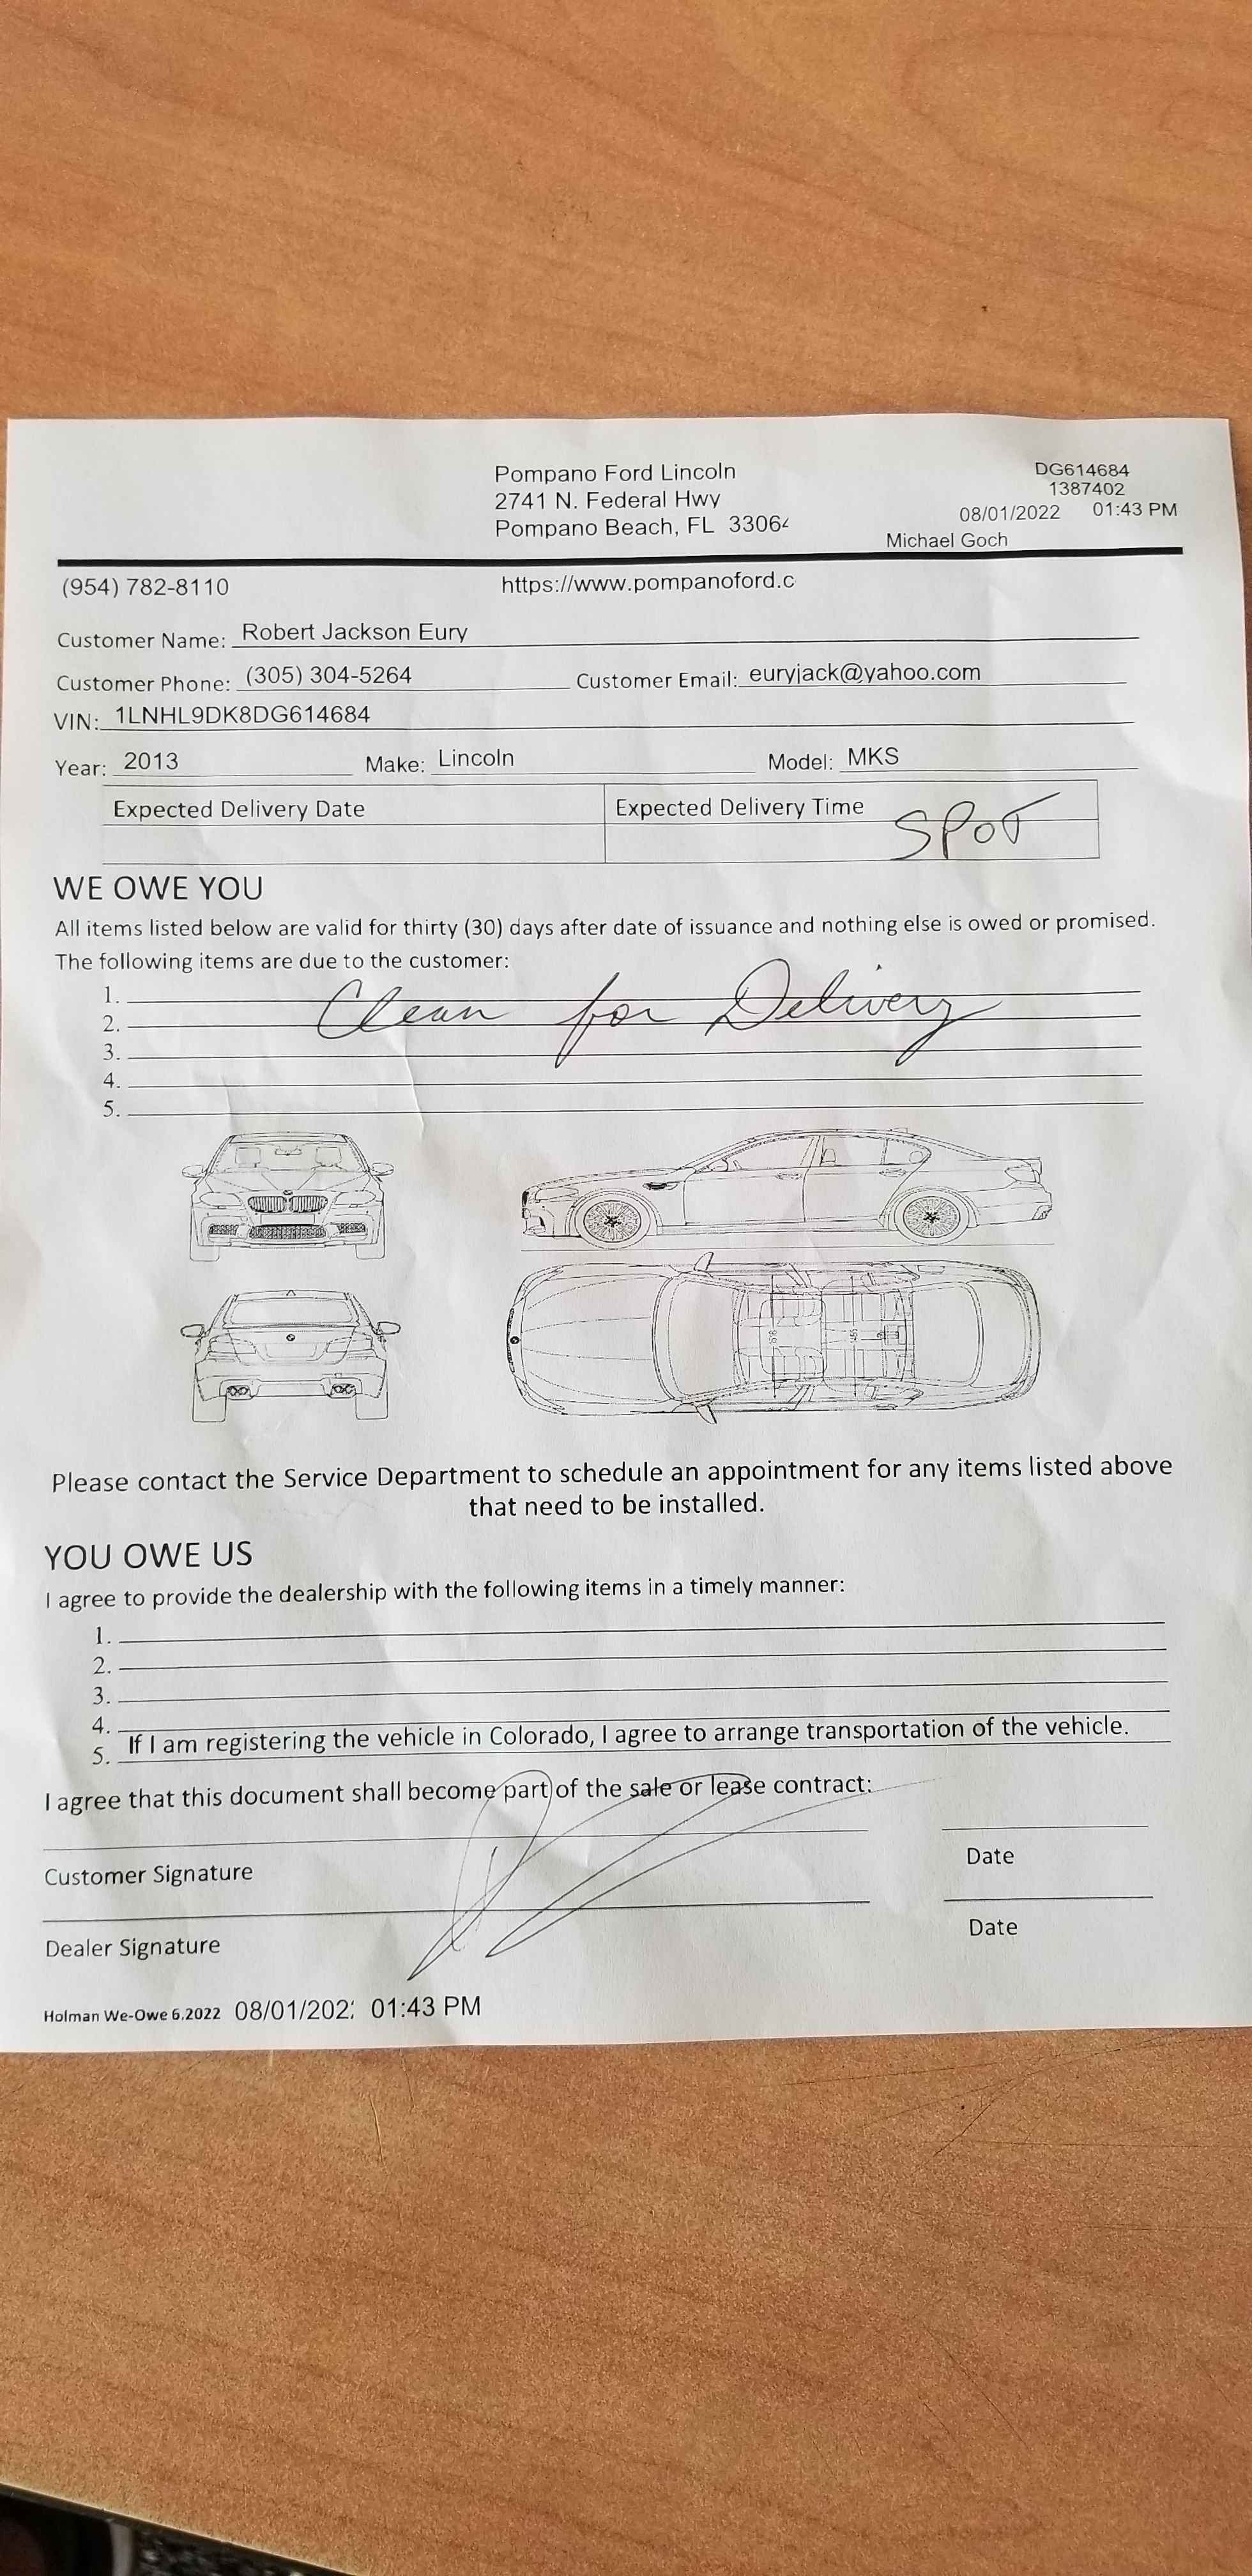 Pompano Ford Lincoln DG614684
2741 N. Federal Hwy 1387402
Pompano Beach, FL 33064 08/01/2022 01:43 PM
Michael Goch
(954) 782-8110 https://www.pompanoford.c
Customer Name: Robert Jackson Eury
Customer Phone: (305) 304-5264 Customer Email: euryjack@yahoo.com
VIN: 1LNHL9DK8DG614684
Year: 2013 Make: Lincoln Model: MKS
Expected Delivery Date Expected Delivery Time SPOT
WE OWE YOU
All items listed below are valid for thirty (30) days after date of issuance and nothing else is owed or promised.
The following items are due to the customer:
1.
2. Clean for Delivery
3.
4.
5.
Please contact the Service Department to schedule an appointment for any items listed above
that need to be installed.
YOU OWE US
I agree to provide the dealership with the following items in a timely manner:
1.
2.
3.
4.
5. If I am registering the vehicle in Colorado, I agree to arrange transportation of the vehicle.
I agree that this document shall become part of the sale or lease contract:
Customer Signature Date
Dealer Signature Date
Holman We-Owe 6.2022 08/01/202 01:43 PM